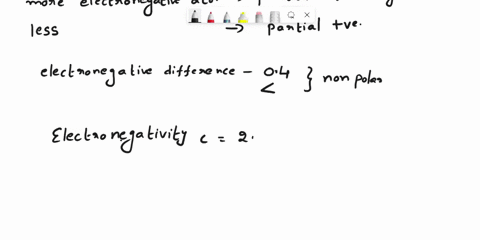 more electronegative
less → partial +ve.
electronegative difference - 0.4 } non polar
<
Electronegativity c = 2.